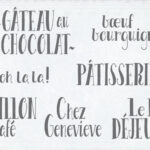 GÂTEAU au
CHOCOLAT
bœuf
bourguign
oh la la!
PÂTISSERI
ILLON
afé
Chez
Genevieve
Le
DÉJEU